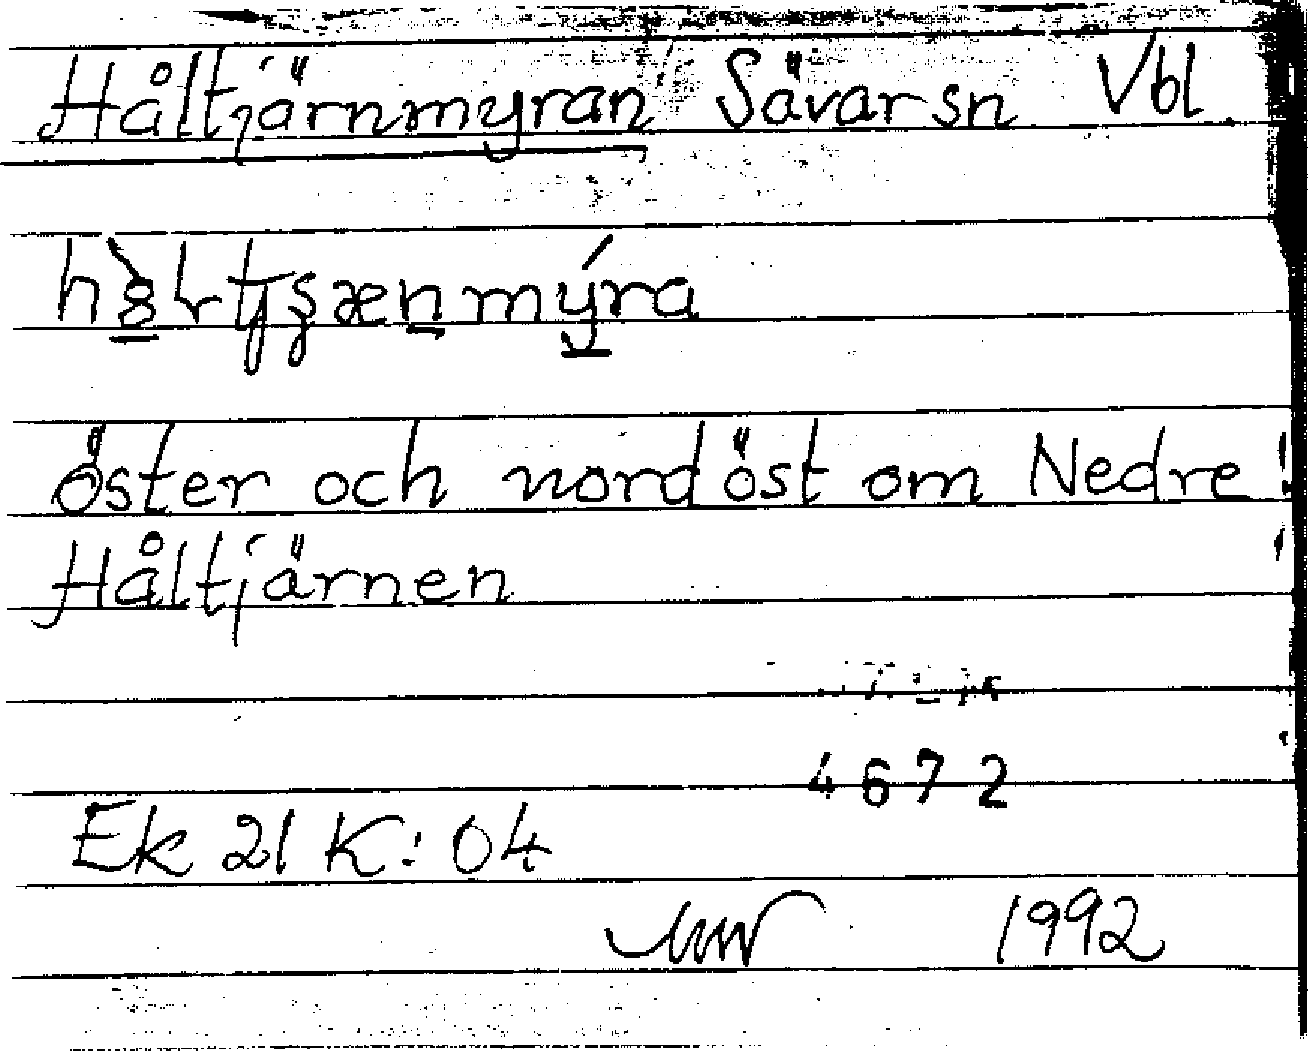 Håltjärnmyran Sävar sn Vbl.
öster och nordöst om Nedre
Håltjärnen
4672
Ek 21 K: 04
1992